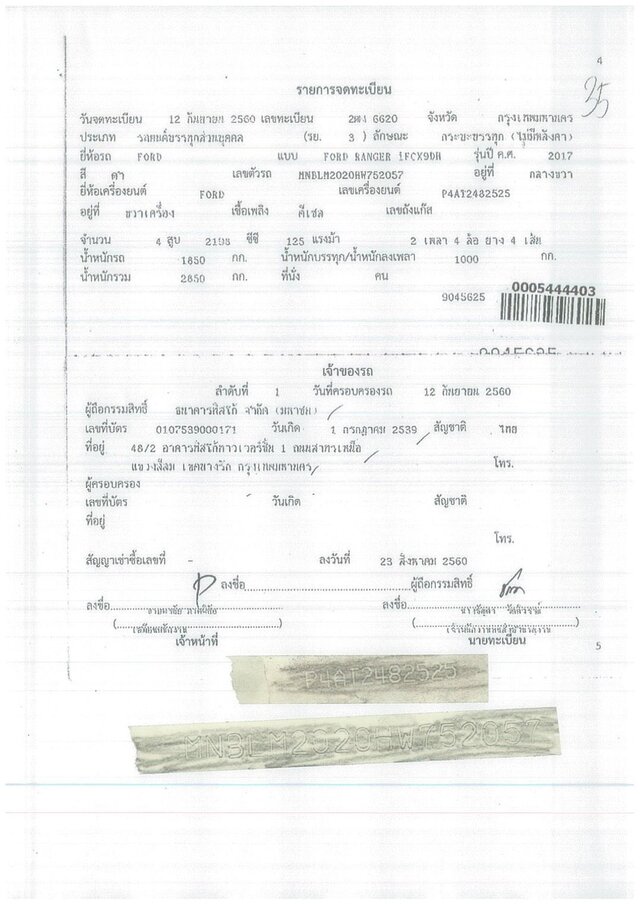 4
35
รายการจดทะเบียน
วันจดทะเบียน 12 กันยายน 2560 เลขทะเบียน 2ฒฆ 6620 จังหวัด กรุงเทพมหานคร
ประเภท รถยนต์บรรทุกส่วนบุคคล (รย. 3 ) ลักษณะ กระบะบรรทุก (ไม่มีหลังคา)
ยี่ห้อรถ FORD แบบ FORD RANGER 1FCX9DH รุ่นปี ค.ศ. 2017
สี ดำ เลขตัวรถ MNBLM2020HW752057 อยู่ที่ กลางขวา
ยี่ห้อเครื่องยนต์ FORD เลขเครื่องยนต์ P4AT2482525
อยู่ที่ ขวาเครื่อง เชื้อเพลิง ดีเซล เลขถังแก๊ส
จำนวน 4 สูบ 2198 ซีซี 125 แรงม้า 2 เพลา 4 ล้อ ยาง 4 เส้น
น้ำหนักรถ 1850 กก. น้ำหนักบรรทุก/น้ำหนักลงเพลา 1000 กก.
น้ำหนักรวม 2850 กก. ที่นั่ง คน
0005444403
9045625
เจ้าของรถ
ลำดับที่ 1 วันที่ครอบครองรถ 12 กันยายน 2560
ผู้ถือกรรมสิทธิ์ ธนาคารทิสโก้ จำกัด (มหาชน)
เลขที่บัตร 0107539000171 วันเกิด 1 กรกฎาคม 2539 สัญชาติ ไทย
ที่อยู่ 48/2 อาคารทิสโก้ทาวเวอร์ชั้น 1 ถนนสาทรเหนือ
แขวงสีลม เขตบางรัก กรุงเทพมหานคร โทร.
ผู้ครอบครอง
เลขที่บัตร วันเกิด สัญชาติ
ที่อยู่
โทร.
สัญญาเช่าซื้อเลขที่ - ลงวันที่ 23 สิงหาคม 2560
ลงชื่อ ผู้ถือกรรมสิทธิ์
ลงชื่อ ลงชื่อ
เจ้าหน้าที่ นายทะเบียน
5
P4AT2482525
MNBLM2020HW752057